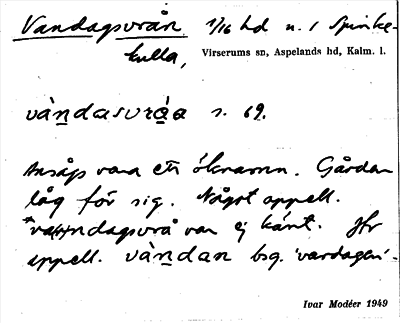 Vandagsvrån 1/16 hd n. 1 Spinke-
kulla,
Virserums sn, Aspelands hd, Kalm. l.
vàndasvráa s. 69.
Ansågs vara ett öknamn. Gården
låg för sig. Något appell.
*vandagsvrå var ej känt. Jfr
appell. vàndan bsg. 'vardagen'.
Ivar Modéer 1949